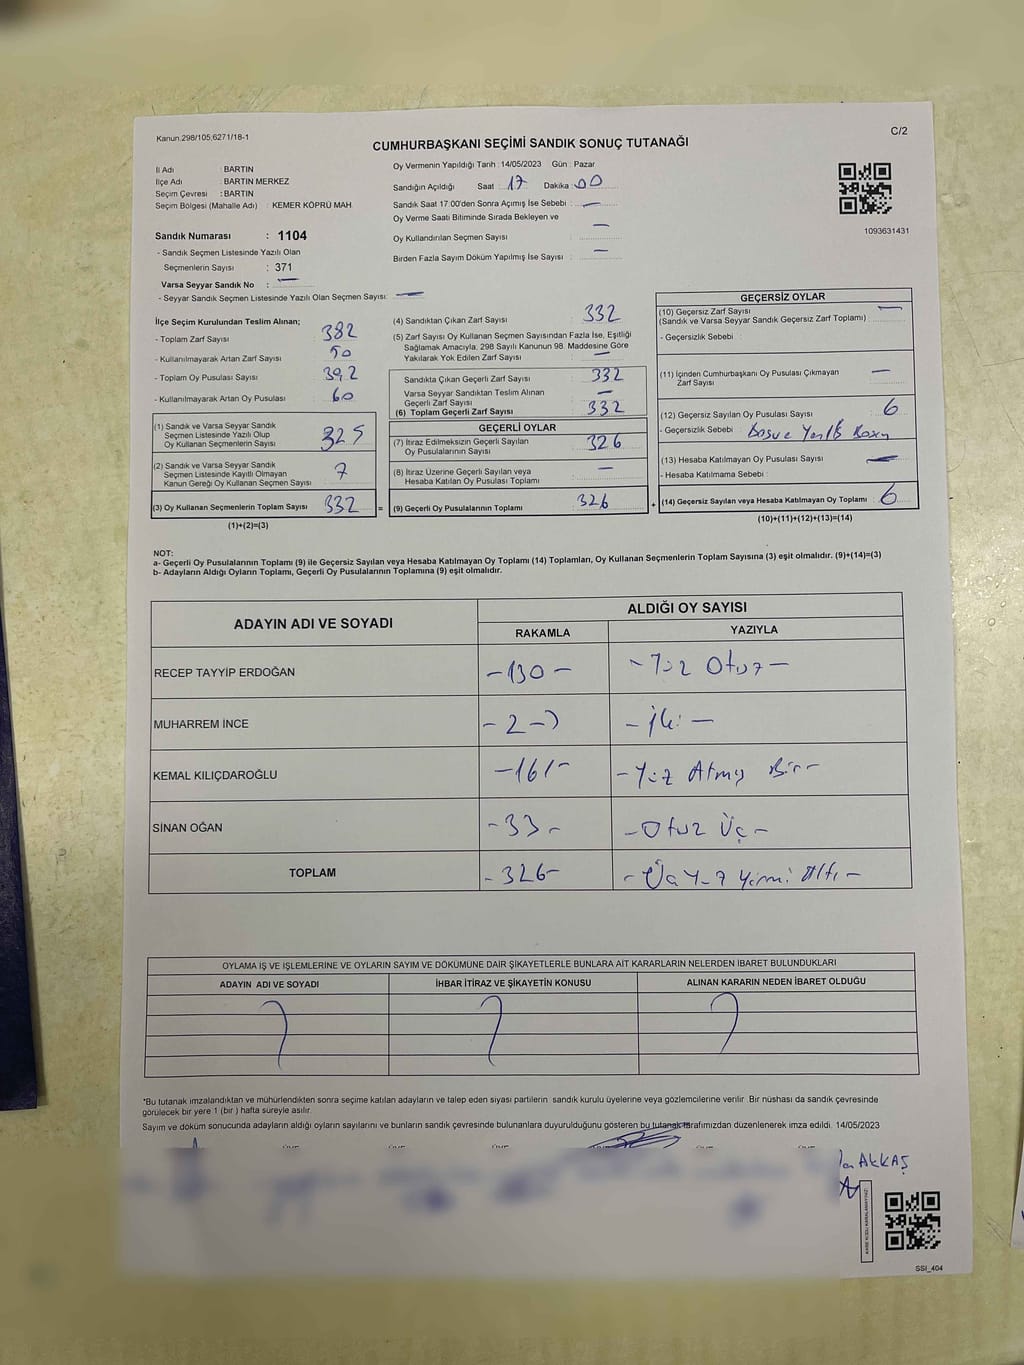 Kanun.298/105,6271/18-1
C/2
CUMHURBAŞKANI SEÇİMİ SANDIK SONUÇ TUTANAĞI
İl Adı : BARTIN
İlçe Adı : BARTIN MERKEZ
Seçim Çevresi : BARTIN
Seçim Bölgesi (Mahalle Adı) : KEMER KÖPRÜ MAH.
Oy Vermenin Yapıldığı Tarih : 14/05/2023 Gün : Pazar
Sandığın Açıldığı Saat : 17 Dakika : 00
Sandık Saat 17:00'den Sonra Açımış İse Sebebi : —
Oy Verme Saati Bitiminde Sırada Bekleyen ve
Oy Kullandırılan Seçmen Sayısı : —
Birden Fazla Sayım Döküm Yapılmış İse Sayısı : —
1093631431
Sandık Numarası : 1104
- Sandık Seçmen Listesinde Yazılı Olan
Seçmenlerin Sayısı : 371
Varsa Seyyar Sandık No : —
- Seyyar Sandık Seçmen Listesinde Yazılı Olan Seçmen Sayısı: —
İlçe Seçim Kurulundan Teslim Alınan;
- Toplam Zarf Sayısı 382
- Kullanılmayarak Artan Zarf Sayısı 50
- Toplam Oy Pusulası Sayısı 392
- Kullanılmayarak Artan Oy Pusulası 60
(1) Sandık ve Varsa Seyyar Sandık
Seçmen Listesinde Yazılı Olup
Oy Kullanan Seçmenlerin Sayısı 325
(2) Sandık ve Varsa Seyyar Sandık
Seçmen Listesinde Kayıtlı Olmayan
Kanun Gereği Oy Kullanan Seçmen Sayısı 7
(3) Oy Kullanan Seçmenlerin Toplam Sayısı 332 =
(1)+(2)=(3)
(4) Sandıktan Çıkan Zarf Sayısı : 332
(5) Zarf Sayısı Oy Kullanan Seçmen Sayısından Fazla İse, Eşitliği
Sağlamak Amacıyla, 298 Sayılı Kanunun 98. Maddesine Göre
Yakılarak Yok Edilen Zarf Sayısı : —
Sandıkta Çıkan Geçerli Zarf Sayısı : 332
Varsa Seyyar Sandıktan Teslim Alınan
Geçerli Zarf Sayısı : —
(6) Toplam Geçerli Zarf Sayısı : 332
GEÇERLİ OYLAR
(7) İtiraz Edilmeksizin Geçerli Sayılan
Oy Pusulalarının Sayısı : 326
(8) İtiraz Üzerine Geçerli Sayılan veya
Hesaba Katılan Oy Pusulası Toplamı : —
(9) Geçerli Oy Pusulalarının Toplamı : 326 +
GEÇERSİZ OYLAR
(10) Geçersiz Zarf Sayısı
(Sandık ve Varsa Seyyar Sandık Geçersiz Zarf Toplamı) : —
- Geçersizlik Sebebi :
(11) İçinden Cumhurbaşkanı Oy Pusulası Çıkmayan
Zarf Sayısı : —
(12) Geçersiz Sayılan Oy Pusulası Sayısı : 6
- Geçersizlik Sebebi :
(13) Hesaba Katılmayan Oy Pusulası Sayısı : —
- Hesaba Katılmama Sebebi :
(14) Geçersiz Sayılan veya Hesaba Katılmayan Oy Toplamı : 6
(10)+(11)+(12)+(13)=(14)
NOT:
a- Geçerli Oy Pusulalarının Toplamı (9) ile Geçersiz Sayılan veya Hesaba Katılmayan Oy Toplamı (14) Toplamları, Oy Kullanan Seçmenlerin Toplam Sayısına (3) eşit olmalıdır. (9)+(14)=(3)
b- Adayların Aldığı Oyların Toplamı, Geçerli Oy Pusulalarının Toplamına (9) eşit olmalıdır.
ADAYIN ADI VE SOYADI
ALDIĞI OY SAYISI
RAKAMLA YAZIYLA
RECEP TAYYİP ERDOĞAN -130- - Yüz Otuz -
MUHARREM İNCE -2- - İki -
KEMAL KILIÇDAROĞLU -161- - Yüz Atmış Bir -
SİNAN OĞAN -33- - Otuz Üç -
TOPLAM -326- - Üç Yüz Yirmi Altı -
OYLAMA İŞ VE İŞLEMLERİNE VE OYLARIN SAYIM VE DÖKÜMÜNE DAİR ŞİKAYETLERLE BUNLARA AİT KARARLARIN NELERDEN İBARET BULUNDUKLARI
ADAYIN ADI VE SOYADI İHBAR İTİRAZ VE ŞİKAYETİN KONUSU ALINAN KARARIN NEDEN İBARET OLDUĞU
*Bu tutanak imzalandıktan ve mühürlendikten sonra seçime katılan adayların ve talep eden siyasi partilerin sandık kurulu üyelerine veya gözlemcilerine verilir. Bir nüshası da sandık çevresinde
görülecek bir yere 1 (bir) hafta süreyle asılır.
Sayım ve döküm sonucunda adayların aldığı oyların sayılarını ve bunların sandık çevresinde bulunanlara duyurulduğunu gösteren bu tutanak tarafımızdan düzenlenerek imza edildi. 14/05/2023
AKKAŞ
SSI_404